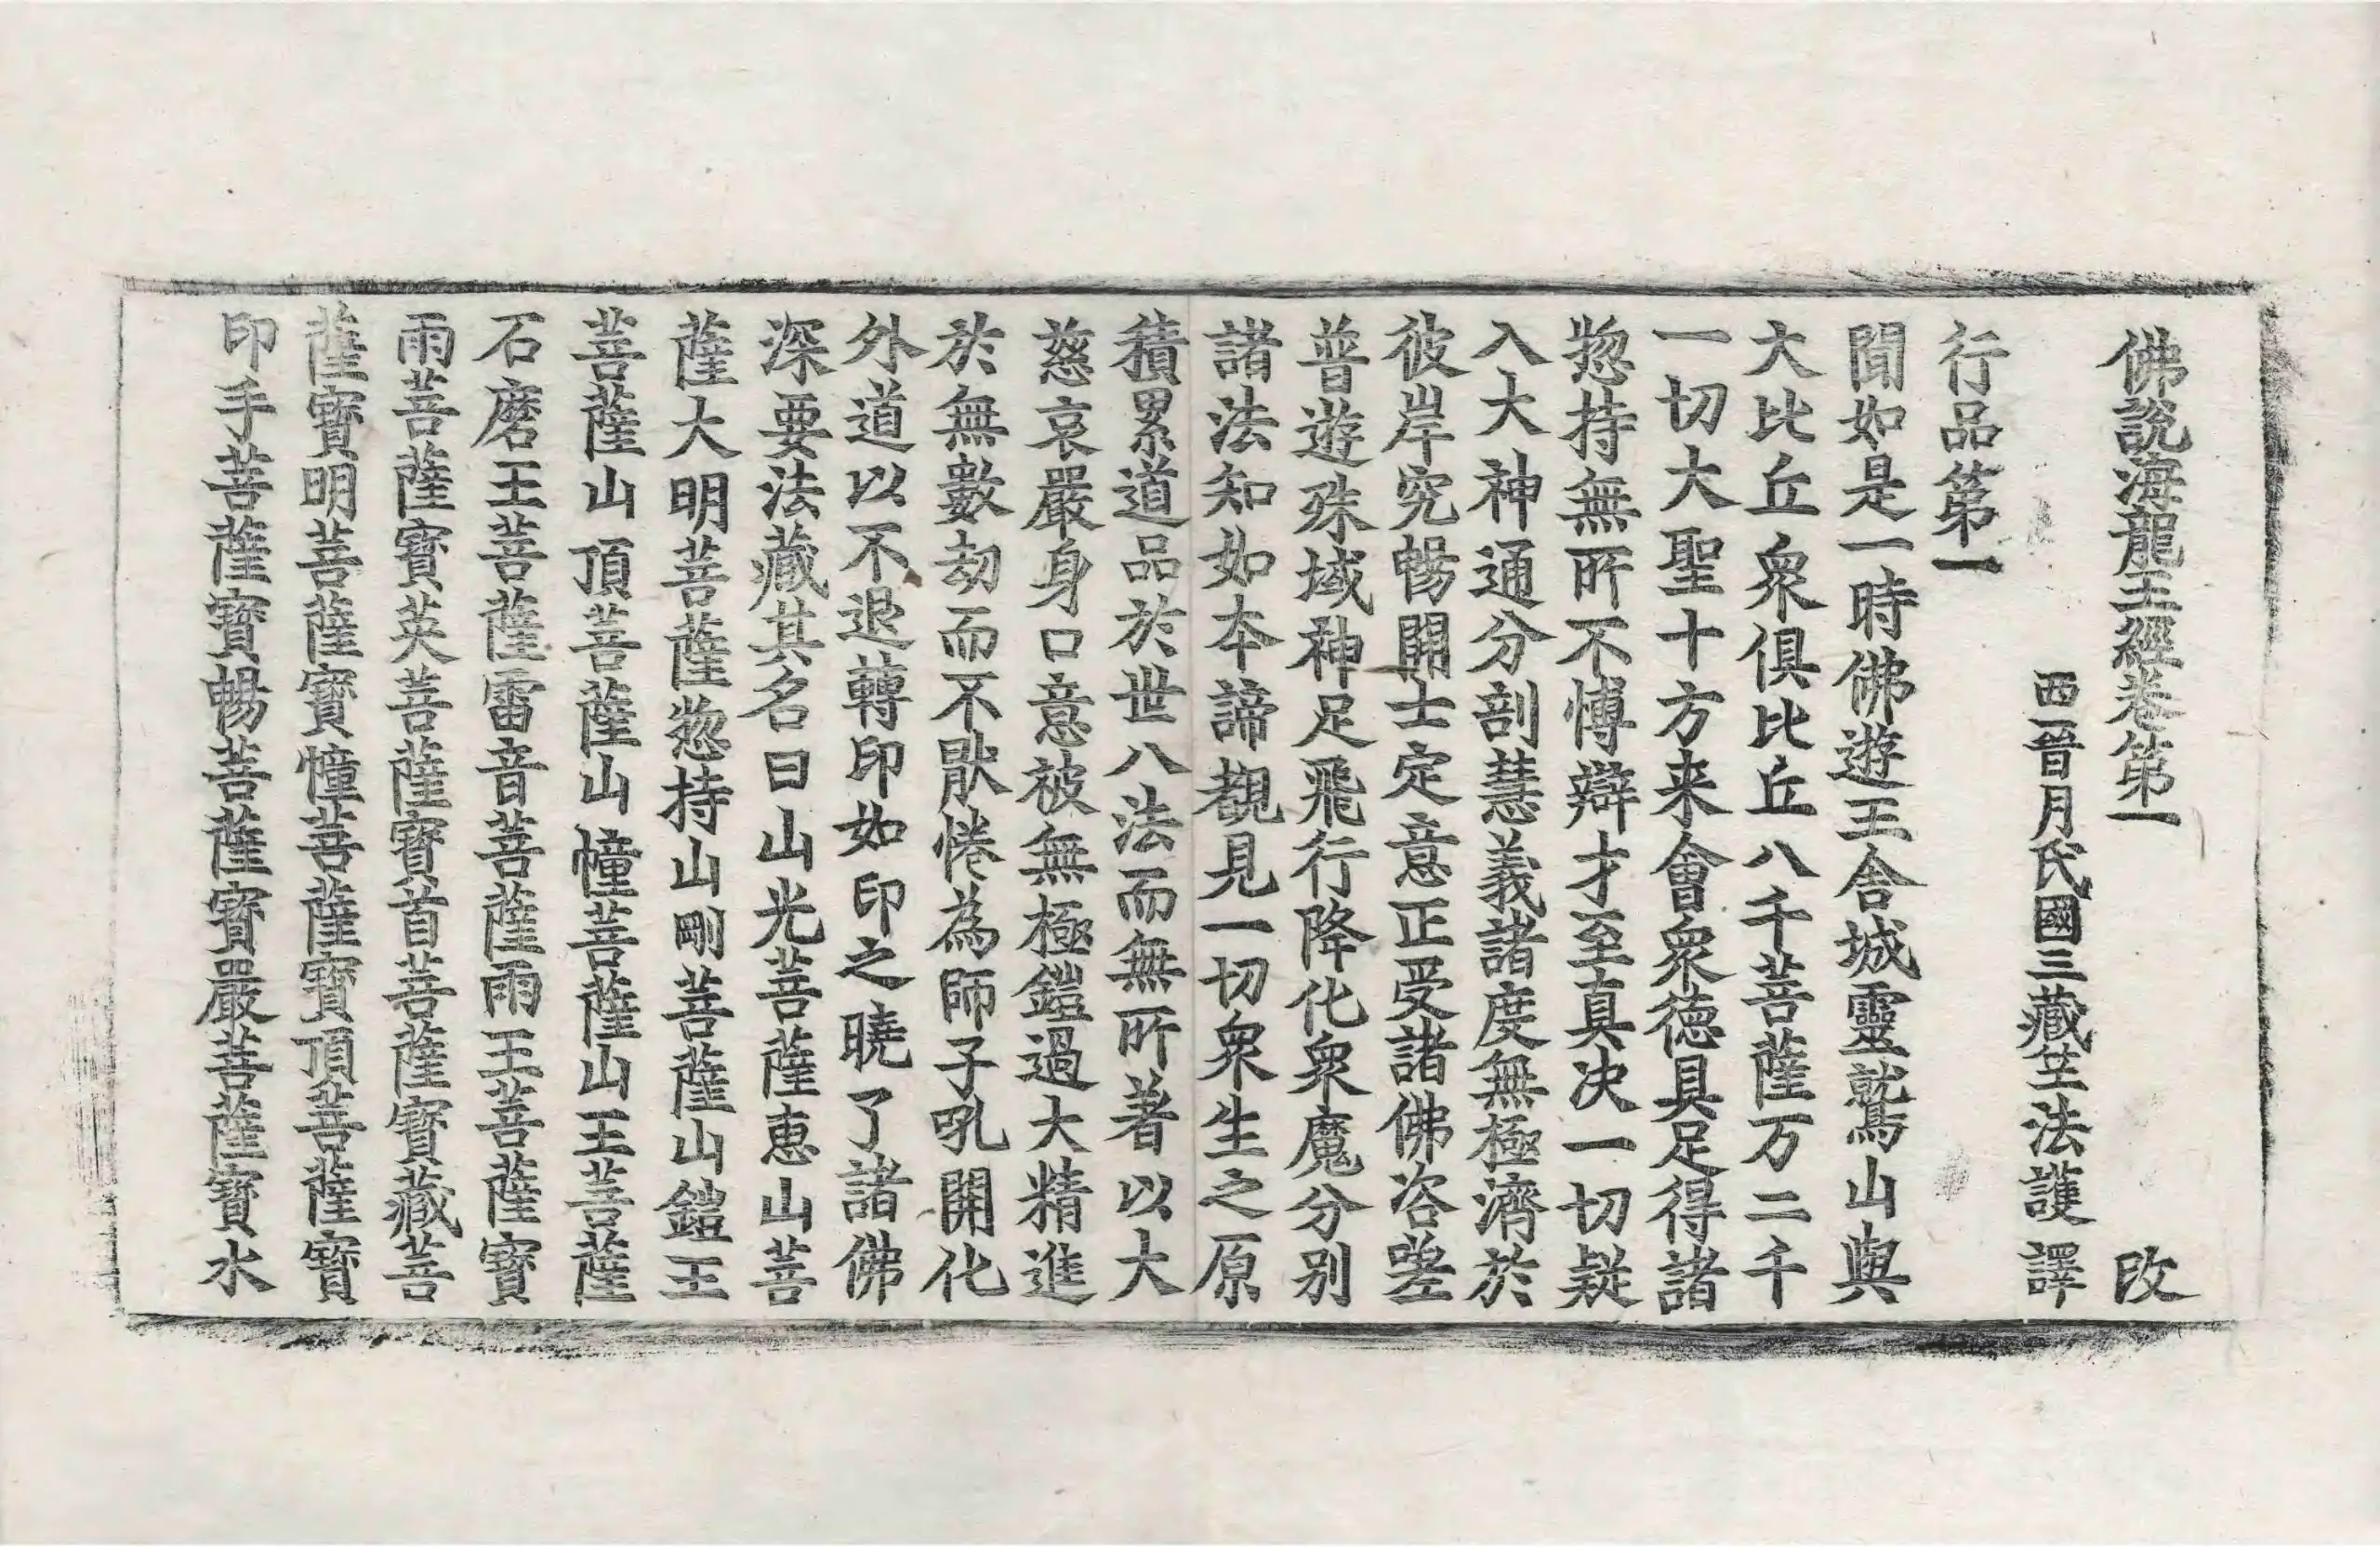 佛說海龍王經卷第一 改
西晉月氏國三藏竺法護譯
行品第一
聞如是一時佛遊王舍城靈鷲山與
大比丘衆俱比丘八千菩薩万二千
一切大聖十方来會衆德具足得諸
惣持無所不博辯才至真决一切疑
入大神通分剖慧義諸度無極濟於
彼岸究暢開士定意正受諸佛咨嗟
普遊殊域神足飛行降化衆魔分别
諸法知如本諦觀見一切衆生之原
積累道品於世八法而無所著以大
慈哀嚴身口意被無極鎧過大精進
於無數劫而不猒惓為師子吼開化
外道以不退轉印如印之曉了諸佛
深要法藏其名曰山光菩薩恵山菩
薩大明菩薩惣持山剛菩薩山鎧王
菩薩山頂菩薩山幢菩薩山王菩薩
石磨王菩薩雷音菩薩雨王菩薩寶
雨菩薩寳英菩薩寳首菩薩寳藏菩
薩寳明菩薩寳幢菩薩寳頂菩薩寳
印手菩薩寳暢菩薩寳嚴菩薩寳水